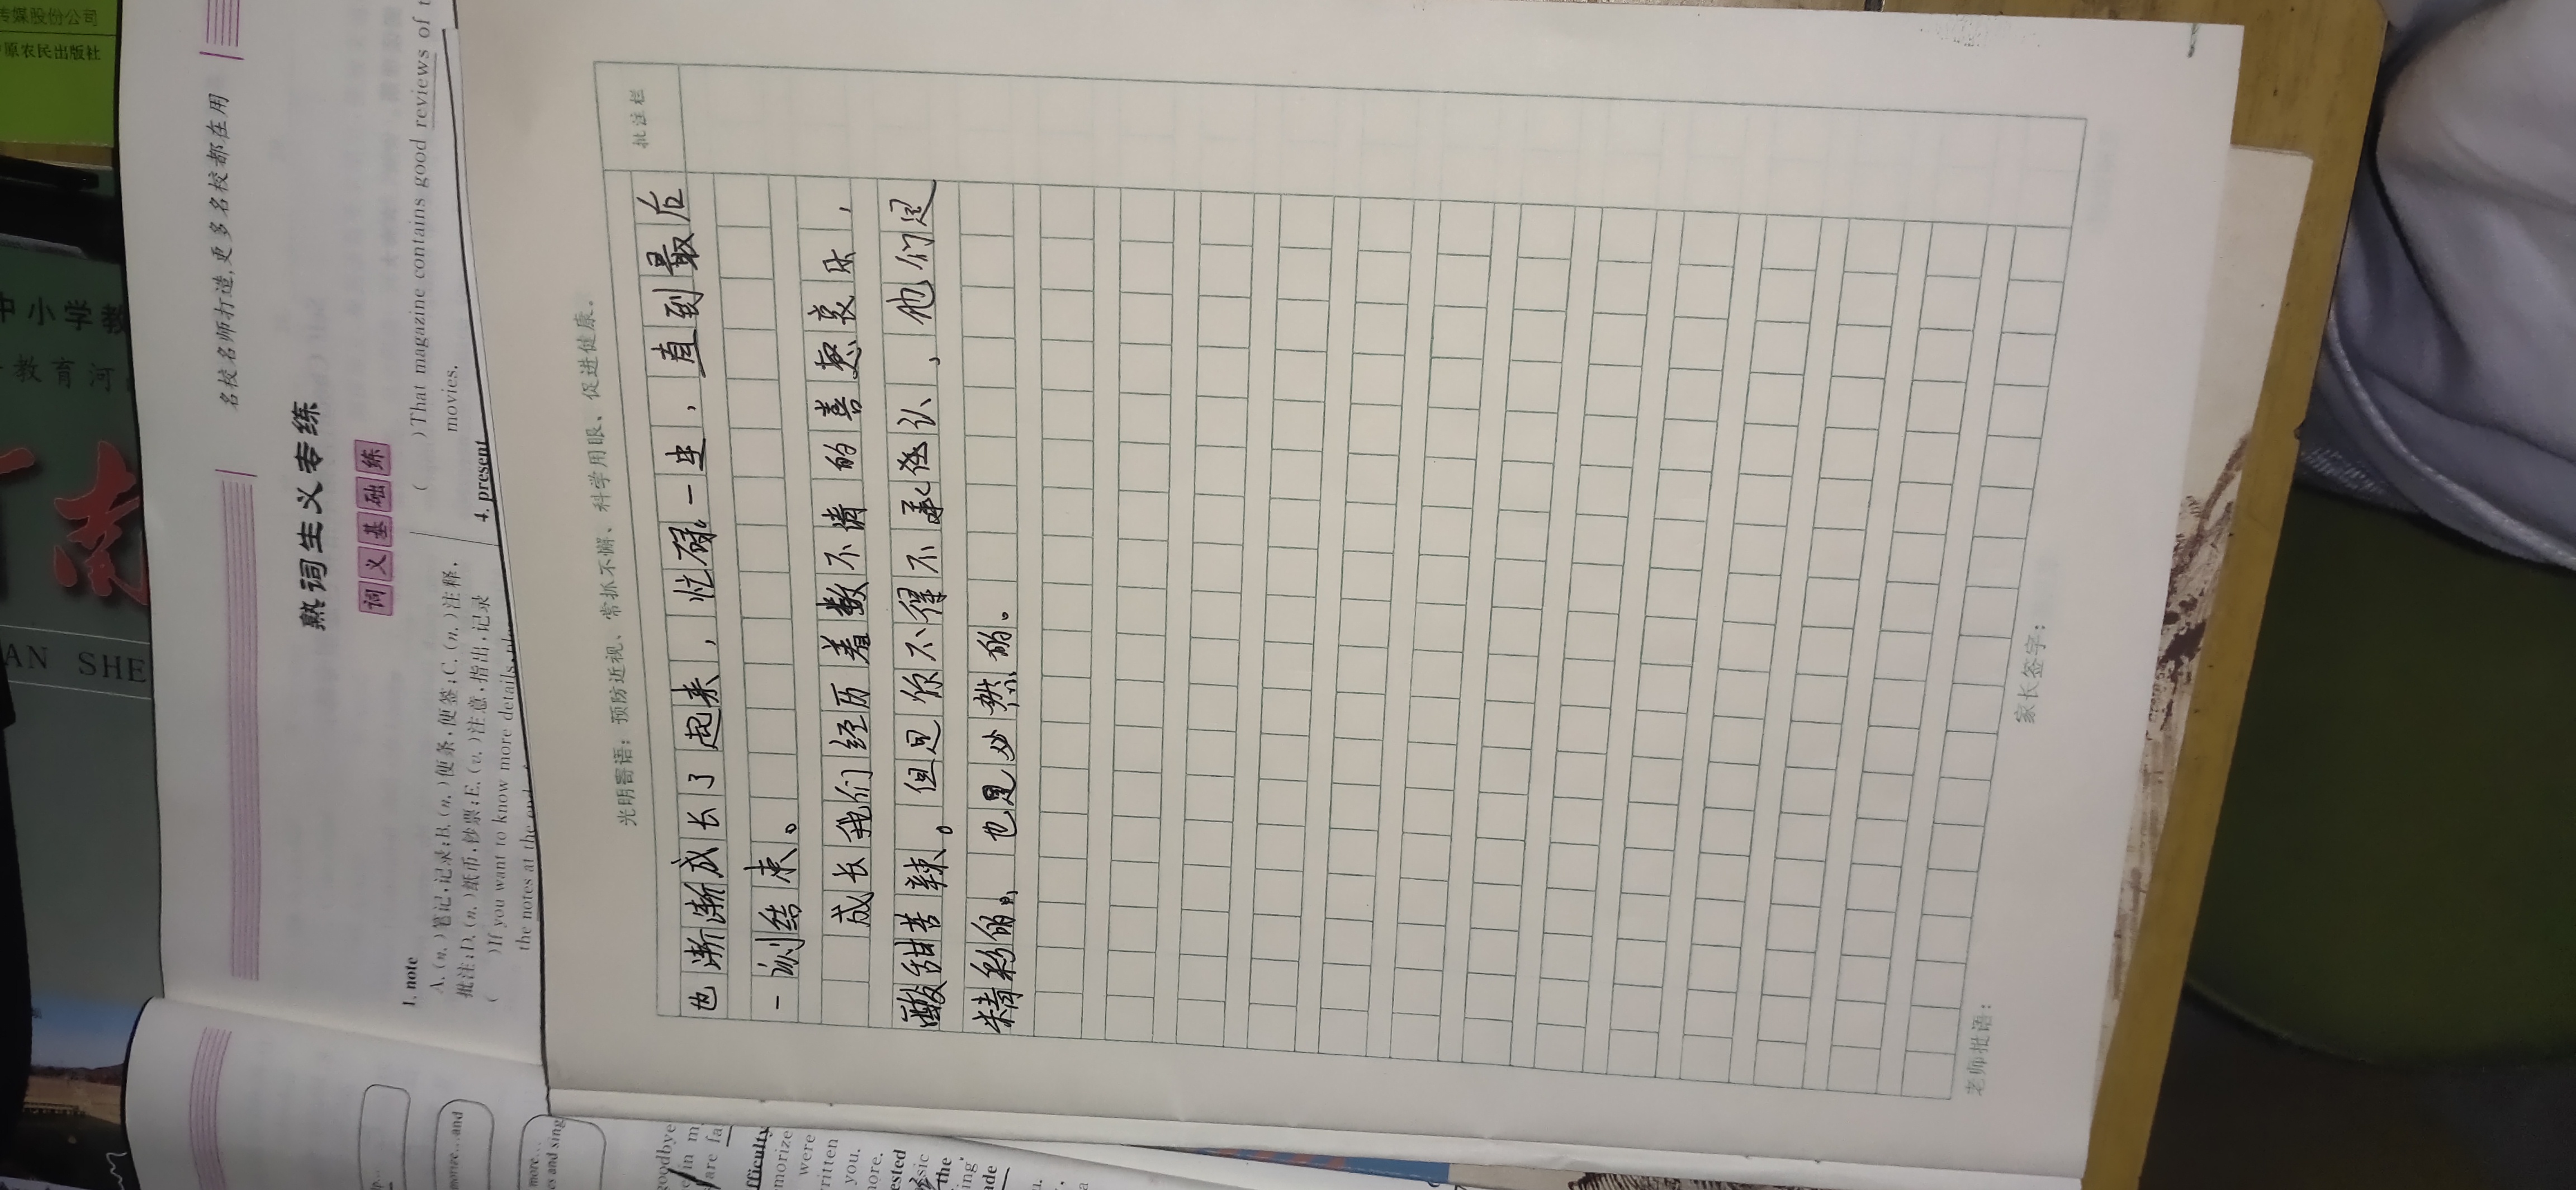 传媒股份公司
原农民出版社
中小学教
教育河
南
AN SHE
名校名师打造,更多名校都在用
熟词生义专练
词义基础练
1. note
A. (n.)笔记,记录;B. (n.)便条,便签;C. (n.)注释,
批注;D. (n.)纸币,钞票;E. (v.)注意,指出,记录
( )If you want to know more details,
the notes at the end
( )That magazine contains good reviews of
movies.
4. present
光明寄语:预防近视、常抓不懈、科学用眼、促进健康.
批注栏
也渐渐成长了起来,忙碌一生,直到最后
一刻结束。
成长我们经历着数不清的喜怒哀乐,
酸甜苦辣。但是你不得不承认、他们是
精彩的。也是必然的。
老师批语:
家长签字:
more...and
more...
es and sing
goodbye
in m
are fa
fficulty
morize
were
ritten
you.
more.
ested
sic
the
ing'
ade